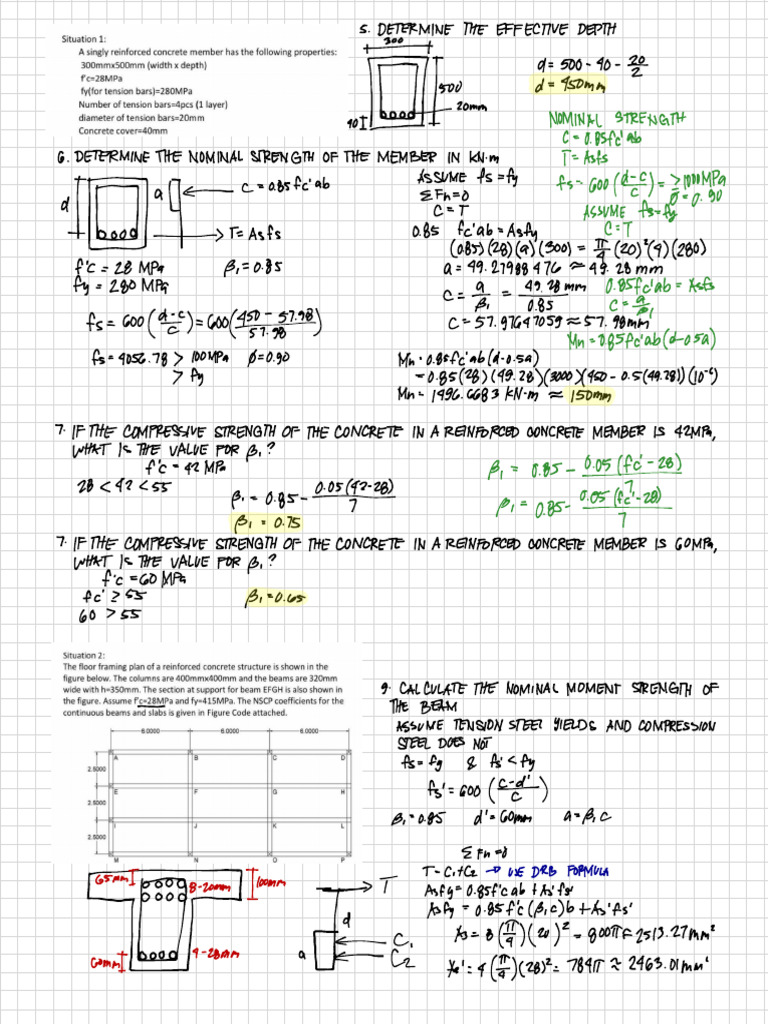 Situation 1:
A singly reinforced concrete member has the following properties:
300mmx500mm (width x depth)
f'c=28MPa
fy(for tension bars)=280MPa
Number of tension bars=4pcs (1 layer)
diameter of tension bars=20mm
Concrete cover=40mm
5. DETERMINE THE EFFECTIVE DEPTH
300
500
20mm
40
d = 500 - 40 - 20/2
d = 450mm
NOMINAL STRENGTH
C = 0.85fc'ab
T = Asfs
fs = 600 (d-c/c) = ≥1000MPa
Ø = 0.90
ASSUME fs=fy
C=T
0.85fc'ab = Asfs
C = a/β1
Mn = 0.85fc'ab(d-0.5a)
6. DETERMINE THE NOMINAL STRENGTH OF THE MEMBER IN KN·m
d
a
C = 0.85 fc'ab
T = Asfs
f'c = 28 MPa
β1 = 0.85
fy = 280 MPa
fs = 600 (d-c/c) = 600 (450 - 57.98/57.98)
fs = 4056.78 > 1000MPa Ø=0.90
> fy
ASSUME fs = fy
ΣFn=0
C = T
0.85 fc'ab = Asfy
(0.85)(28)(a)(300) = π/4 (20)²(4)(280)
a = 49.27988476 ≈ 49.28 mm
C = a/β1 = 49.28 mm/0.85
C = 57.97647059 ≈ 57.98mm
Mn = 0.85fc'ab(d-0.5a)
= 0.85(28)(49.28)(3000)(450 - 0.5(49.28))(10⁻⁶)
Mn = 1496.6683 KN·m ≈ 150mm
7. IF THE COMPRESSIVE STRENGTH OF THE CONCRETE IN A REINFORCED CONCRETE MEMBER IS 42MPa,
WHAT IS THE VALUE FOR β1?
f'c = 42 MPa
28 < 42 < 55
β1 = 0.85 - 0.05(42-28)/7
β1 = 0.75
β1 = 0.85 - 0.05(fc'-28)/7
β1 = 0.85 - 0.05(fc'-28)/7
7. IF THE COMPRESSIVE STRENGTH OF THE CONCRETE IN A REINFORCED CONCRETE MEMBER IS 60MPa,
WHAT IS THE VALUE FOR β1?
f'c = 60 MPa
fc' ≥ 55
β1 = 0.65
60 > 55
Situation 2:
The floor framing plan of a reinforced concrete structure is shown in the
figure below. The columns are 400mmx400mm and the beams are 320mm
wide with h=350mm. The section at support for beam EFGH is also shown in
the figure. Assume f'c=28MPa and fy=415MPa. The NSCP coefficients for the
continuous beams and slabs is given in Figure Code attached.
6.0000 6.0000 6.0000
A B C D
2.5000
E F G H
2.5000
I J K L
2.5000
M N O P
65mm
8-20mm
100mm
60mm
4-28mm
T
d
a
C1
C2
9. CALCULATE THE NOMINAL MOMENT STRENGTH OF
THE BEAM
ASSUME TENSION STEEL YIELDS AND COMPRESSION
STEEL DOES NOT
fs = fy & fs' < fy
fs' = 600 (c-d'/c)
β1 = 0.85 d' = 60mm a = β1c
ΣFn=0
T = C1+C2 → USE DRB FORMULA
Asfy = 0.85f'cab + As'fs'
Asfy = 0.85f'c(β1c)b + As'fs'
As = 8 (π/4)(20)² = 800π ≈ 2513.27mm²
As' = 4 (π/4)(28)² = 784π ≈ 2463.01mm²